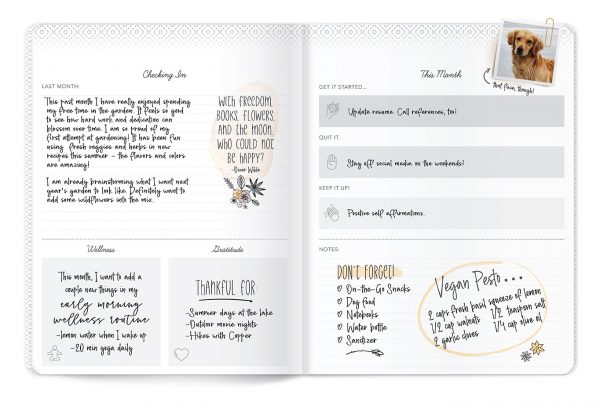 Checking In
LAST MONTH:
This past month I have really enjoyed spending
my free time in the garden. It feels so good
to see how hard work and dedication can
blossom over time. I am so proud of my
first attempt at gardening! It has been fun
using fresh veggies and herbs in new
recipes this summer - the flavors and colors
are amazing!
I am already brainstorming what I want next
year's garden to look like. Definitely want to
add some wildflowers into the mix.
WITH FREEDOM,
BOOKS, FLOWERS,
AND THE MOON,
WHO COULD NOT
BE HAPPY?
-Oscar Wilde
Wellness
This month, I want to add a
couple new things in my
early morning
wellness routine
-lemon water when I wake up
-20 min yoga daily
Gratitude
THANKFUL FOR:
-Summer days at the lake
-Outdoor movie nights
-Hikes with Copper
This Month
that face, though!
GET IT STARTED...
Update resume. Call references, too!
QUIT IT.
Stay off social media on the weekends!
KEEP IT UP!
Positive self affirmations.
NOTES:
DON'T FORGET!
On-the-Go Snacks
Dog food
Notebooks
Water bottle
Sanitizer
Vegan Pesto...
2 cups fresh basil squeeze of lemon
1/2 cup walnuts 1/2 teaspoon salt
2 garlic cloves 1/4 cup olive oil